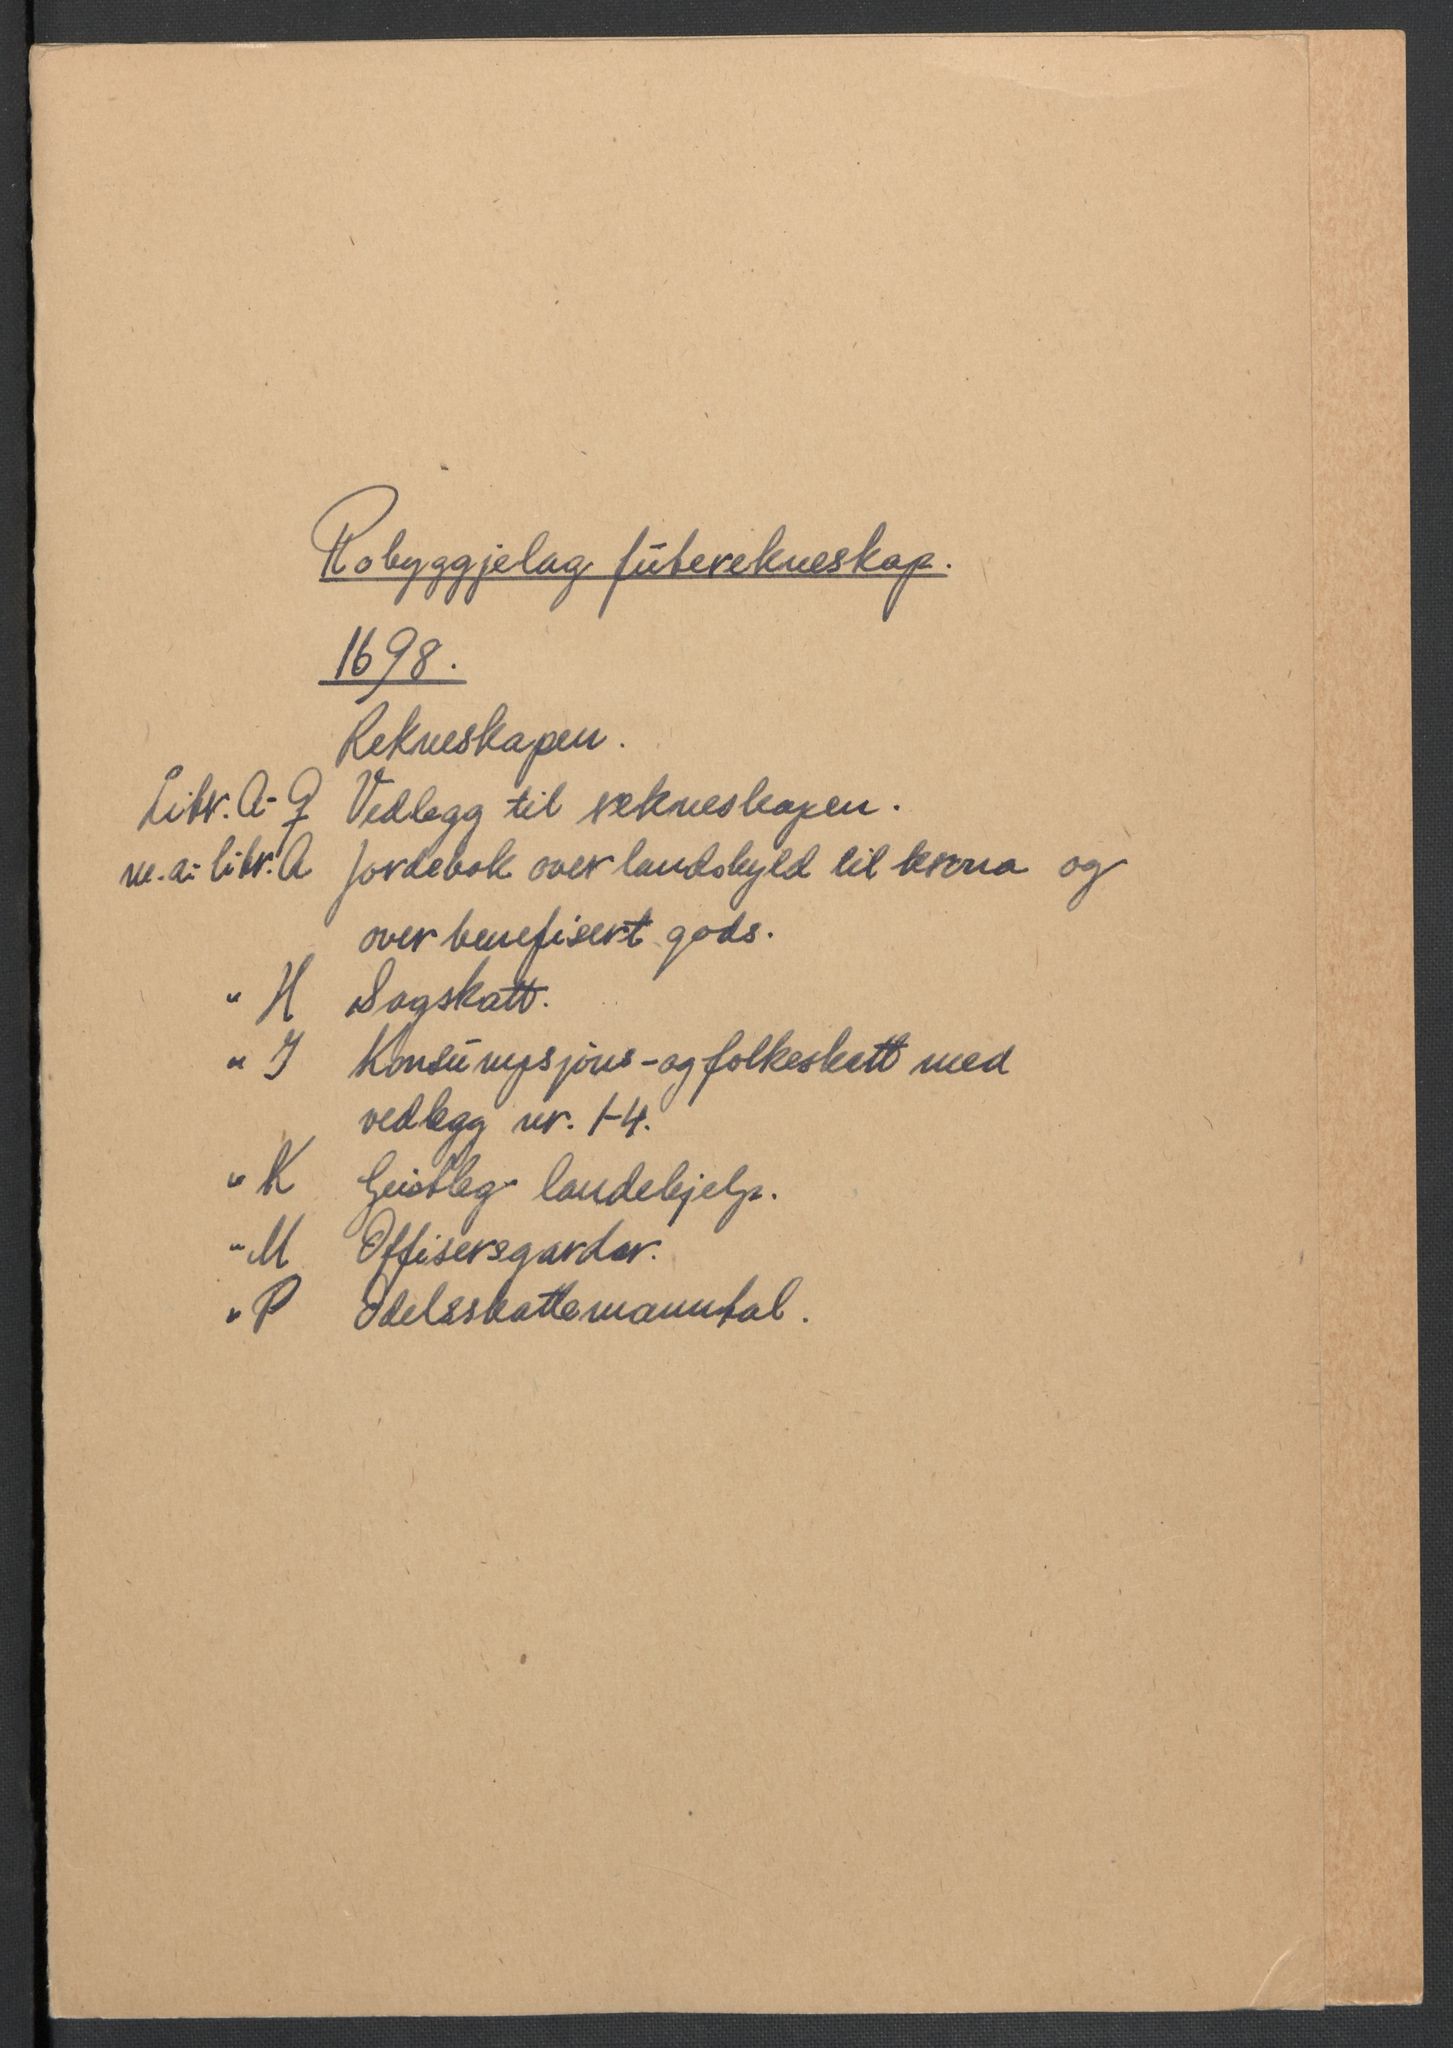 Robyggjelag futerekneskap.
1698.
Rekneskapen.
Litr. A-Q Vedlegg til rekneskapen.
m.a. litr. A Jordebok over landskyld til krona og
over benefisert gods.
" H Sagskatt.
" J Konsumpsjons- og folkeskatt med
vedlegg nr. 1-4.
" K Geistleg landehjelp.
" M Offisersgardar.
" P Odelsskattemanntal.